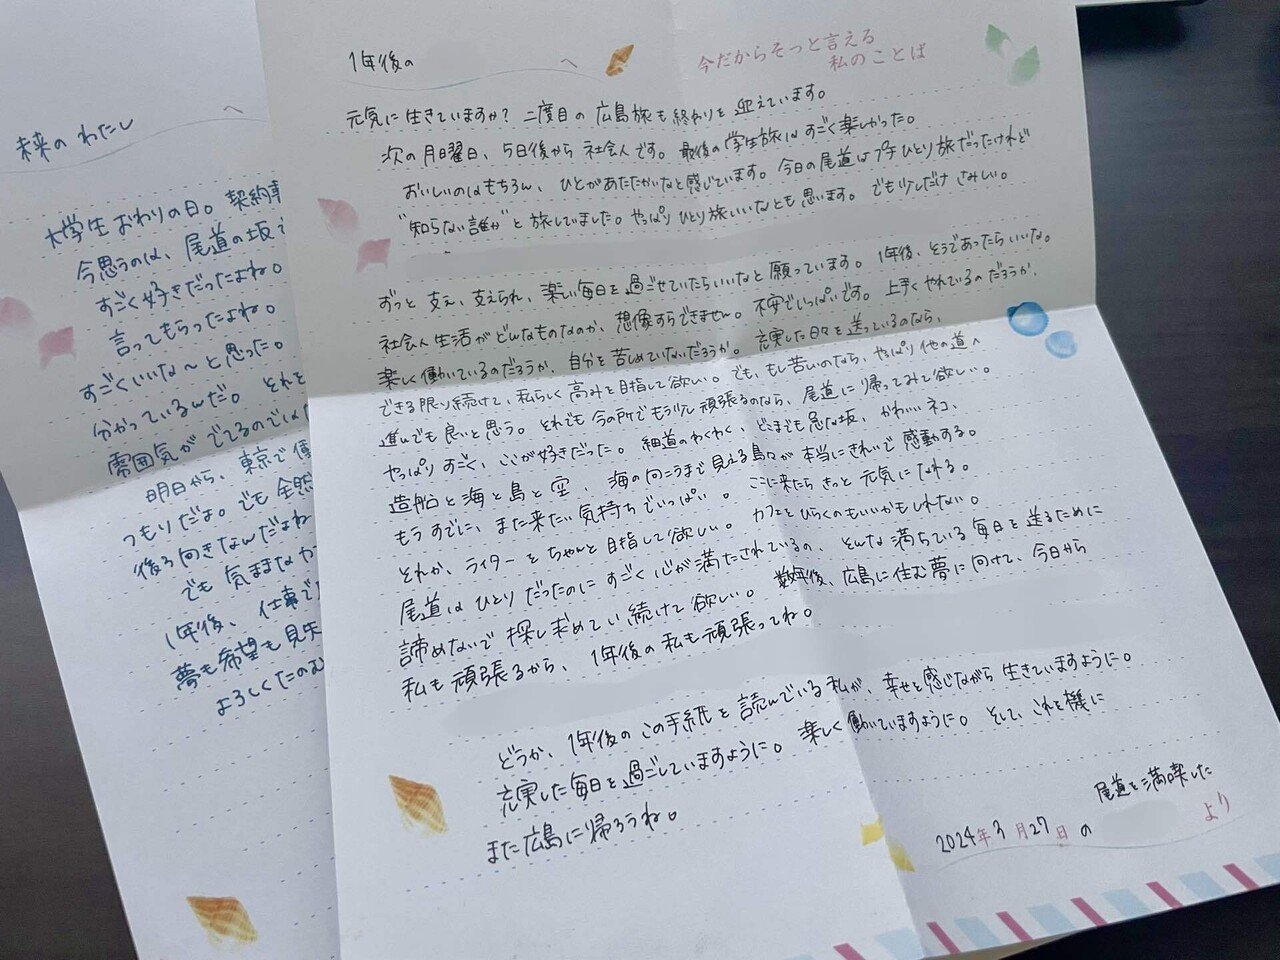 未来の わたし
へ
大学生 おわりの日。契約
今思うのは、尾道の坂で
すごく好きだったよね。
言ってもらったよね。
すごくいいな〜と思った。
分かっているんだ。それを
雰囲気が でてるのでは
明日から、東京で働
つもりだよ。でも全然
後ろ向きなんだよね
でも 気ままな
1年後、仕事で
夢も希望も見失
よろしくたのむ
1年後の
へ
今だからそっと言える
私のことば
元気に生きていますか? 二度目の広島旅も終わりを迎えています。
次の月曜日、5日後から 社会人です。最後の学生旅はすごく楽しかった。
おいしいのはもちろん、ひとがあたたかいなと感じています。今日の尾道はプチひとり旅だったけれど
"知らない誰か"と旅していました。やっぱりひとり旅いいなとも思います。でも少しだけ さみしい。
ずっと 支え、支えられ、楽しい毎日を過ごせていたらいいなと 願っています。1年後、そうであったらいいな。
社会人生活がどんなものなのか、想像すらできません。不安でいっぱいです。上手くやれているのだろうか、
楽しく働いているのだろうか、自分を苦しめていないだろうか。充実した日々を送っているのなら、
できる限り続けて、私らしく高みを目指して欲しい。でも、もし苦しいのなら、やっぱり他の道へ
進んでも良いと思う。それでも今の所でもう少し頑張るのなら、尾道に帰ってみて欲しい。
やっぱりすごく、ここが好きだった。細道のわくわく、どこまでも急な坂、かわいいネコ、
造船と海と島と空、海の向こうまで見える島々が本当にきれいで感動する。
もうすでに、また来たい気持ちでいっぱい。ここに来たらきっと元気になれる。
それか、ライターをちゃんと目指して欲しい。カフェをひらくのもいいかもしれない。
尾道はひとりだったのにすごく心が満たされているの、そんな満ちている毎日を送るために
諦めないで探し求めてい続けて欲しい。数年後、広島に住む夢に向けて、今日から
私も頑張るから、1年後の私も頑張ってね。
どうか、1年後のこの手紙を読んでいる私が、幸せと感じながら生きていますように。
充実した毎日を過ごしていますように。楽しく働いていますように。そして、これを機に
また広島に帰ろうね。
尾道を満喫した
2024年3月27日の
より